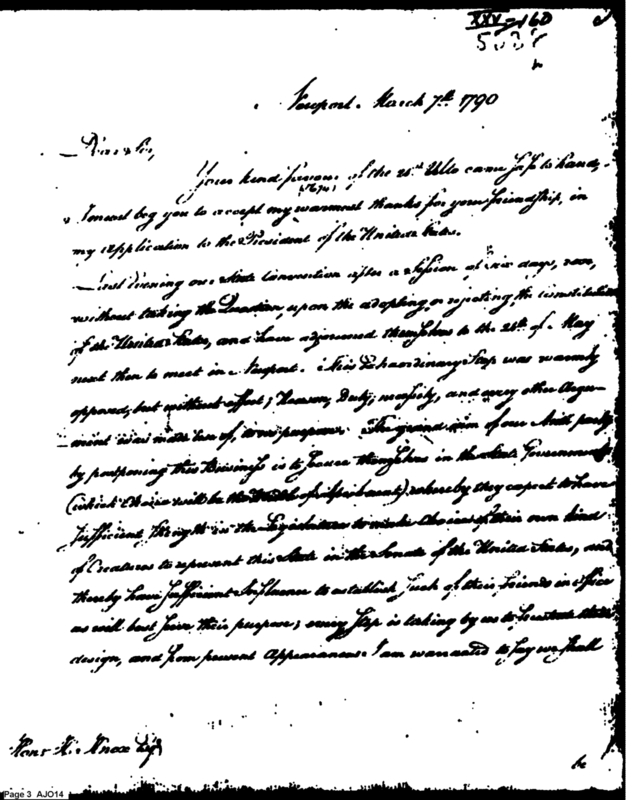 XXV-160
Newport. March 7th 1790
Dear Sir,
Your kind favour of the 21st Ullo came safe to hand,
I must beg you to accept my warmest thanks for your friendship, in
my application to the President of the United States.
Last Evening our State Convention after a Session of six days, rose,
without taking the Question, upon the adopting or rejecting the Constitution
of the United States, and have adjourned themselves to the 24th of May
next then to meet in Newport. This Extraordinary Step was warmly
opposed, but without effect; Reason, Duty, necessity, and every other Argu-
ment was made use of, to no purpose. The grand aim of our Anti party
by postponing this Business is to secure themselves in the State Government
(which Choice will be the of April next) whereby they expect to have
sufficient strength in the Legislature to make Choice of their own kind
of Creatures to represent this State in the Senate of the United States, and
thereby have sufficient Influence to establish such of their friends in office
as will best serve their purpose; every step is taking by us to frustrate their
design, and from present Appearances I am warranted to say we shall
Honr H. Knox Esqr
be
Page 3 AJO14